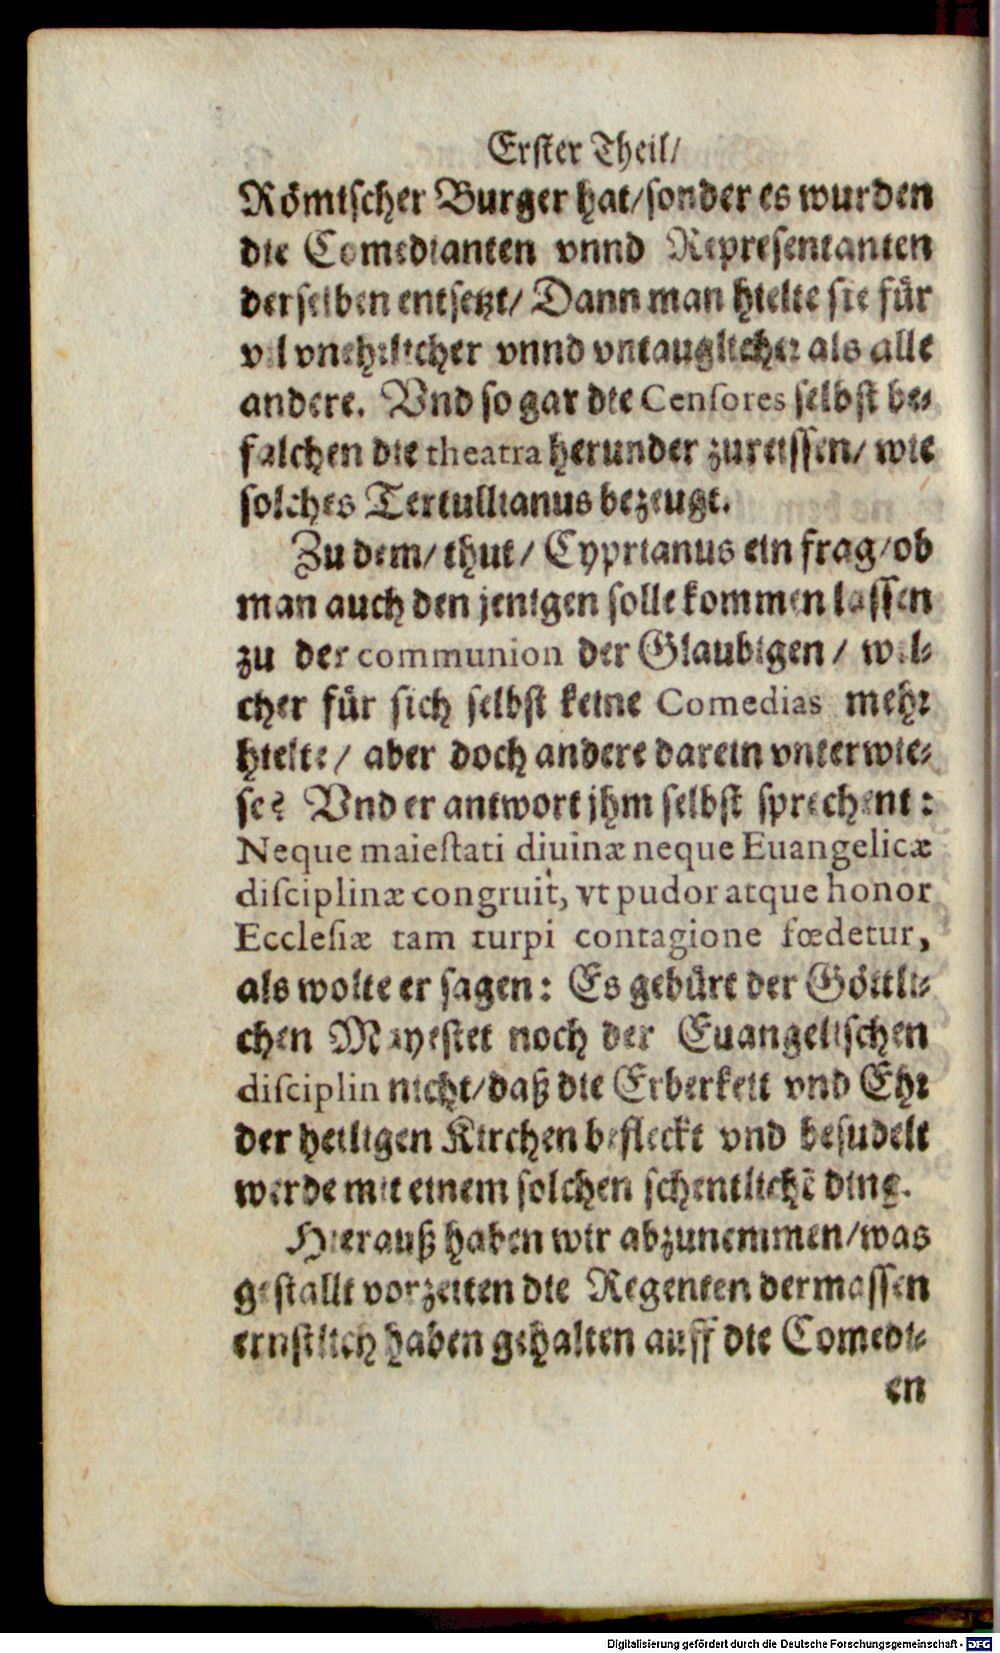 Erster Theil/
Römischer Burger hat/sonder es wurden
die Comedianten vnnd Representanten
derselben entsetzt/ Dann man hielte sie für
vil vnehrlicher vnnd vntauglicher als alle
andere. Vnd so gar die Censores selbst be-
falchen die theatra herunder zureissen/ wie
solches Tertullianus bezeugt.
Zu dem/ thut/ Cyprianus ein frag/ob
man auch den jenigen solle kommen lassen
zu der communion der Glaubigen/ wel-
cher für sich selbst keine Comedias mehr
hielte/ aber doch andere darein vnterwie-
se? Vnd er antwort jhm selbst sprechent:
Neque maiestati diuinæ neque Euangelicæ
disciplinæ congruit, vt pudor atque honor
Ecclesiæ tam turpi contagione fœdetur,
als wolte er sagen: Es gebürt der Göttli-
chen Mayestet noch der Euangelischen
disciplin nicht/daß die Erberkeit vnd Ehr
der heiligen Kirchen befleckt vnd besudelt
werde mit einem solchen schentlichē ding.
Hierauß haben wir abzunemmen/was
gestallt vorzeiten die Regenten dermassen
ernstlich haben gehalten auff die Comedi-
en
Digitalisierung gefördert durch die Deutsche Forschungsgemeinschaft - DFG